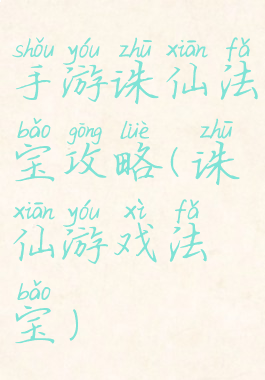 shǒu yóu zhū xiān fǎ
手游诛仙法
bǎo gōng lüè zhū
宝攻略(诛
xiān yóu xì fǎ
仙游戏法
bǎo
宝)